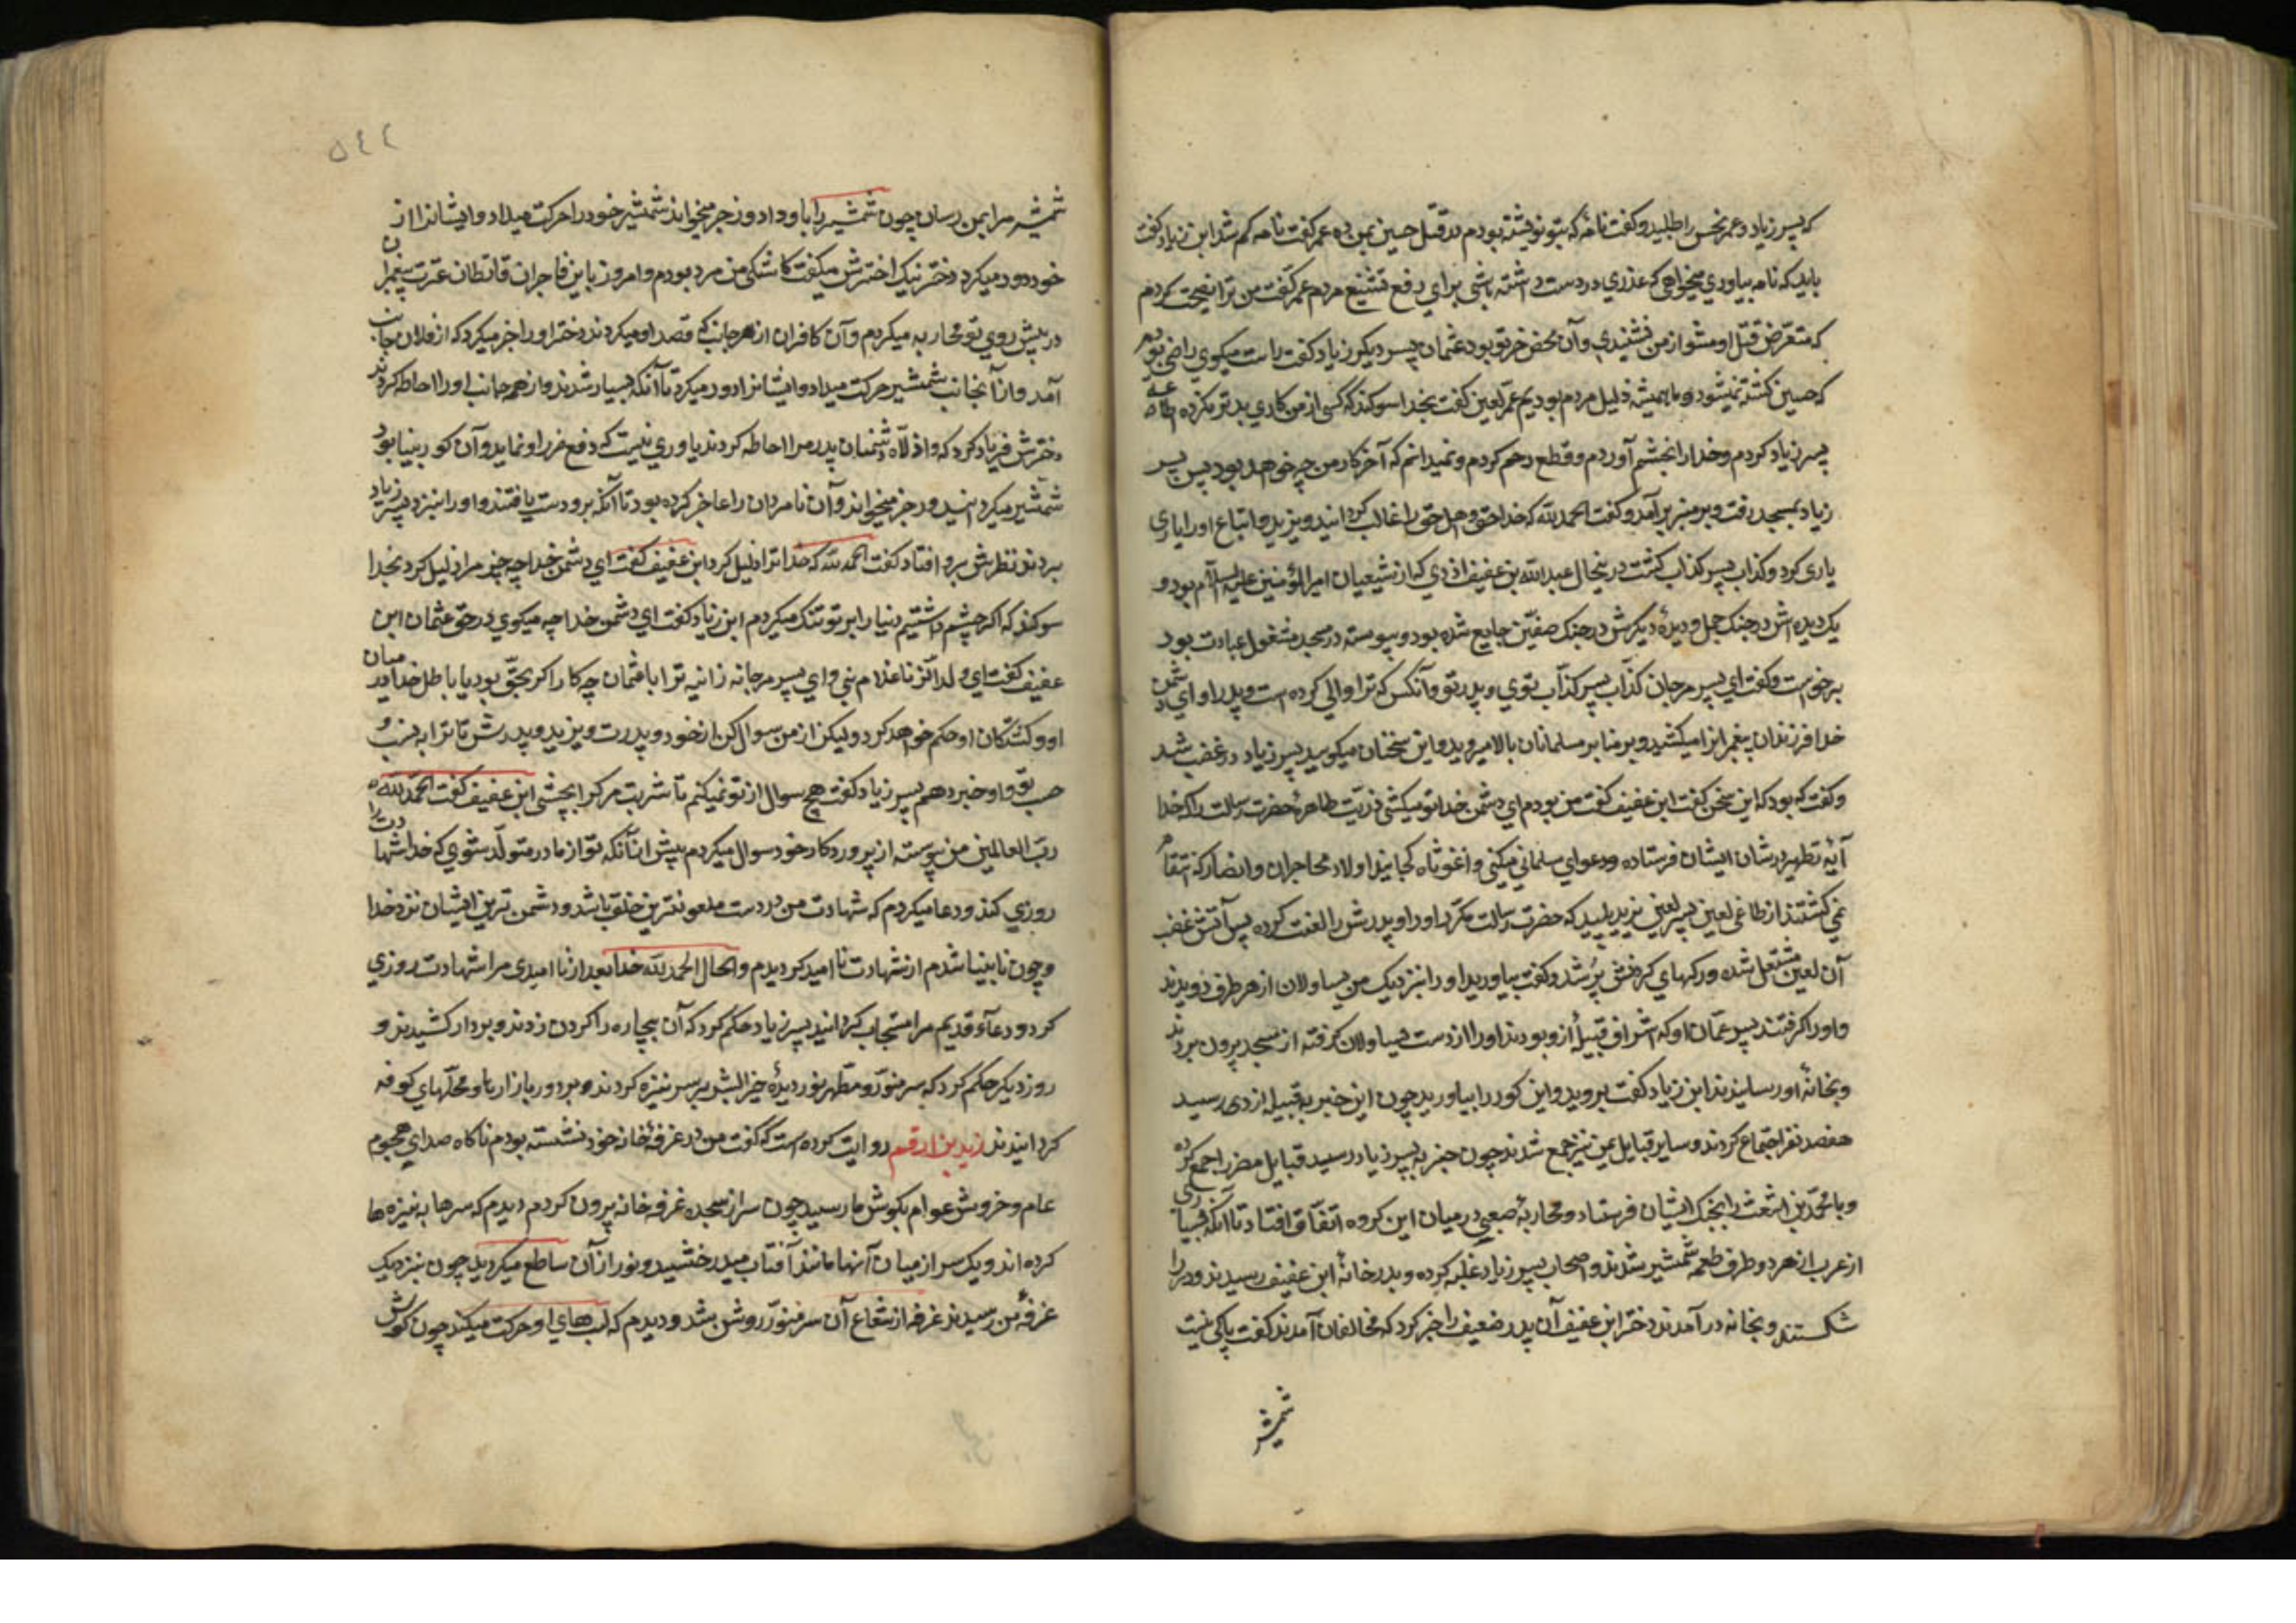 که پسر زیاد و عمر نحس را طلبید و گفت نامهٔ که بتو نوشته بودم در قتل حسین بمن ده عمر گفت نامه کم شد ابن زیاد گفت
باید که نامه بیاوری میخواهی که عذری در دست داشته باشی برای رفع تشنیع مردم عمر گفت من ترا نصیحت کردم
که متعرض قتل او مشو از من نشنیدی و آن محض خر تو بود عثمان پسر دیکر زیاد گفت راست میکوی راضی بودم
که حسین کشته نمیشود و ما همیشه ذلیل مردم بودیم عمر لعین گفت بخدا سوکند که کسی از من کاری بدتر نکرده اطاعة
پسر زیاد کردم و خدا را بخشم آوردم و قطع رحم کردم و نمیدانم که آخر کار من چه خواهد بود پس پسر
زیاد بمسجد رفت و بر منبر برآمد و گفت الحمد لله که خدا حق و اهل حق را غالب کردانید و یزید و اتباع او را یاری
یاری کرد و کذاب پسر کذاب کشت در ینحال عبد الله بن عفیف ازدی که از شیعیان امیر المؤمنین علیه السلام بود و
یک دیده اش در جنک جمل و دیدهٔ دیکرش در جنک صفین ضایع شده بود و پیوسته در مسجد مشغول عبادت بود
برخواست و گفت ای پسر مرجان کذّاب پسر کذّاب توی و پدر تو و آنکس که ترا والی کرده است و پدر او ای دشمن
خدا فرزندان پیغمبرانرا میکشید و بر منابر مسلمانان بالا میروید و این سخنان میکویید پسر زیاد در غضب شد
و گفت که بود که این سخن گفت ابن عفیف گفت من بودم ای دشمن خدا تو میکشی ذریّت طاهرهٔ حضرت رسالت را که خدا
آیهٔ تطهیر در شان ایشان فرستاده و دعوای مسلمانی میکنی واغوثاه کجایند اولاد محاجران و انصار که انتقام
نمی کشند از طاغی لعین پسر لعین یزید پلید که حضرت رسالت مکرر او را و پدرش را لعنت کرده پس آتش غضب
آن لعین مشتعل شده و رکهای کردنش پر شد و گفت بیاورید او را بنزدیک من یساولان از هر طرف دویدند
و او را کرفتند پسر عمّان او که اشراف قبیلهٔ ازد بودند او را از دست یساولان کرفته از مسجد بیرون بردند
و بخانهٔ او رسانیدند ابن زیاد گفت بروید و این کور را بیاورید چون این خبر بقبیله ازدی رسید
هفصد نفر اجتماع کردند و سایر قبایل یمن نیز جمع شدند چون خبر به پسر زیاد رسید قبایل مضر را جمع کرده
و با محمّد بن اشعث را بجنک ایشان فرستاد و محاربهٔ صعبی در میان این کروه اتفّاق افتاد تا آنکه بسیاری
از عرب از هر دو طرف طعمه شمشیر شدند و اصحاب پسر زیاد غلبه کرده و بدر خانهٔ ابن عفیف رسیدند و در را
شکستند و بخانه در آمدند دختر ابن عفیف آن پدر ضعیف را خبر کرد که مخالفان آمدند گفت باکی نیست
شمشیر
٥٤٢
شمشیر مرا بمن رسان چون شمشیر را باو داد و رجز میخواند شمشیر خود را حرکت میداد و ایشانرا از
خود دور میکرد دختر نیک اخترش میکفت کاشکی من مرد بودم و امروز با این فاجران قاتلان عترت پیغمبران
در پیش روی تو محاربه میکردم و آن کافران از هر جانب که قصد او میکردند دختر او را خبر میکرد که از فلان جانب
آمد و از آنجانب شمشیر حرکت میداد و ایشانرا دور میکرد تا آنکه بسیار شدند و از همه جانب او را احاطه کردند
دخترش فریاد کرد که واذلّاه دشمنان پدر مرا احاطه کردند یاوری نیست که دفع ضرر او نماید و آن کور بینا بود
شمشیر میکردانید و رجز میخواند و آن نامردان را عاجز کرده بود تا آنکه برو دست یافتند و او را بنزد پسر زیاد
بردند نظرش برو افتاد گفت الحمد لله که خدا ترا ذلیل کرد ابن عفیف گفت ای دشمن خدا چه چیز مرا ذلیل کرد بخدا
سوکند که اگر چشم داشتیم دنیا را بر تو تنک میکردم ابن زیاد گفت ای دشمن خدا چه میکوی در حق عثمان ابن
عفیف گفت ای ولد الزنا غلام بنی و ای پسر مرجانه زانیه ترا با عثمان چه کار اگر بحقّ بود یا باطل خدا در میان
او و کشندکان او حکم خواهد کرد ولیکن از من سوال کن از خود و پدرت و یزید و پدرش تا ترا به نسب و
حسب تو و او خبر دهم پسر زیاد گفت هیچ سوال از تو نمیکنم تا شربت مرک را بچشی ابن عفیف گفت الحمد لله
ربّ العالمین من پیوسته از پروردکار خود سوال میکردم پیش از آنکه تو از مادر متولّد شوی که خدا شهادت را
روزی کند و دعا میکردم که شهادت من در دست ملعونترین خلق باشد و دشمن ترین ایشان نزد خدا
و چون نابینا شدم از شهادت نا امید کردیدم و الحال الحمد لله خدا بعد از نا امیدی مرا شهادت روزی
کرد و دعاء قدیم مرا مستجاب کردانید پسر زیاد حکم کرد که آن بیچاره را کردن زدند و بر دار کشیدند و
روز دیکر حکم کرد که سر منوّر و مطّهر نور دیدهٔ خیر البشر بر سر نیزه کردند و بر دور بازارها و محلّهای کوفه
کردانیدند زید بن ارقم روایت کرده است که گفت من در غرفهٔ خانه خود نشسته بودم ناکاه صدای هجوم
عام و خروش عوام بکوش ما رسید چون سر از سجده غرفه خانه بیرون کردم دیدم که سرها به نیزه ها
کرده اند و یک سر از میان آنها مانند آفتاب میدرخشید و نور از آن ساطع میکردید چون بنزدیک
غرفهٔ من رسیدند غرفه از شعاع آن سر منوّر روشن شد و دیدم که لب های او حرکت میکند چون کوش